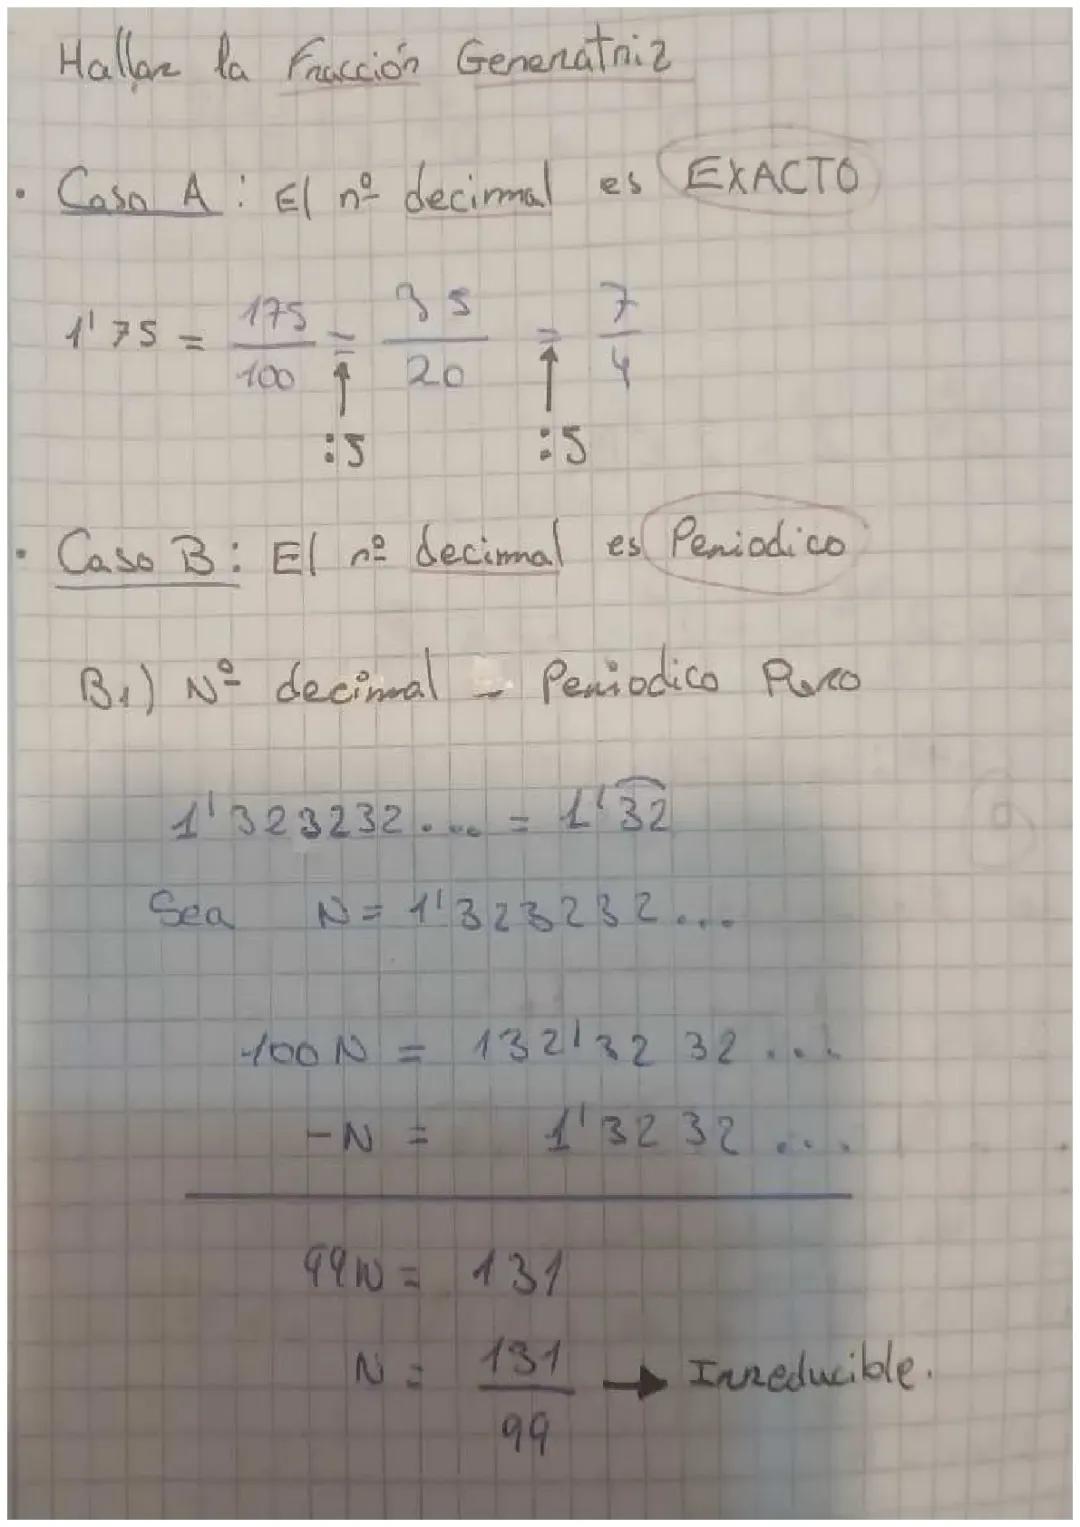 Hallar la Fracción Generatriz
· Caso A : El nº decimal es EXACTO
1'75 = 175/100 = 35/20 = 7/4
:5 :5
· Caso B : El nº decimal es Periodico
B1) Nº decimal - Periodico Puro
1'323232... = 1'3͡2
Sea N = 1'323232...
100N = 132'3232...
-N = 1'3232...
99N = 131
N = 131/99 → Irreducible.